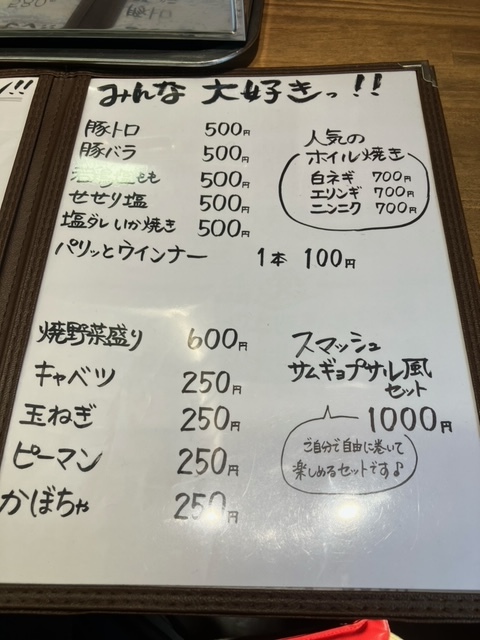 みんな 大好きっ!!
豚トロ 500円
豚バラ 500円
もも 500円
せせり塩 500円
塩ダレいか焼き 500円
パリッとウインナー 1本 100円
人気の
ホイル焼き
白ネギ 700円
エリンギ 700円
ニンニク 700円
焼野菜盛り 600円
キャベツ 250円
玉ねぎ 250円
ピーマン 250円
かぼちゃ 250円
スマッシュ
サムギョプサル風
セット
1000円
ご自分で自由に巻いて
楽しめるセットです♪